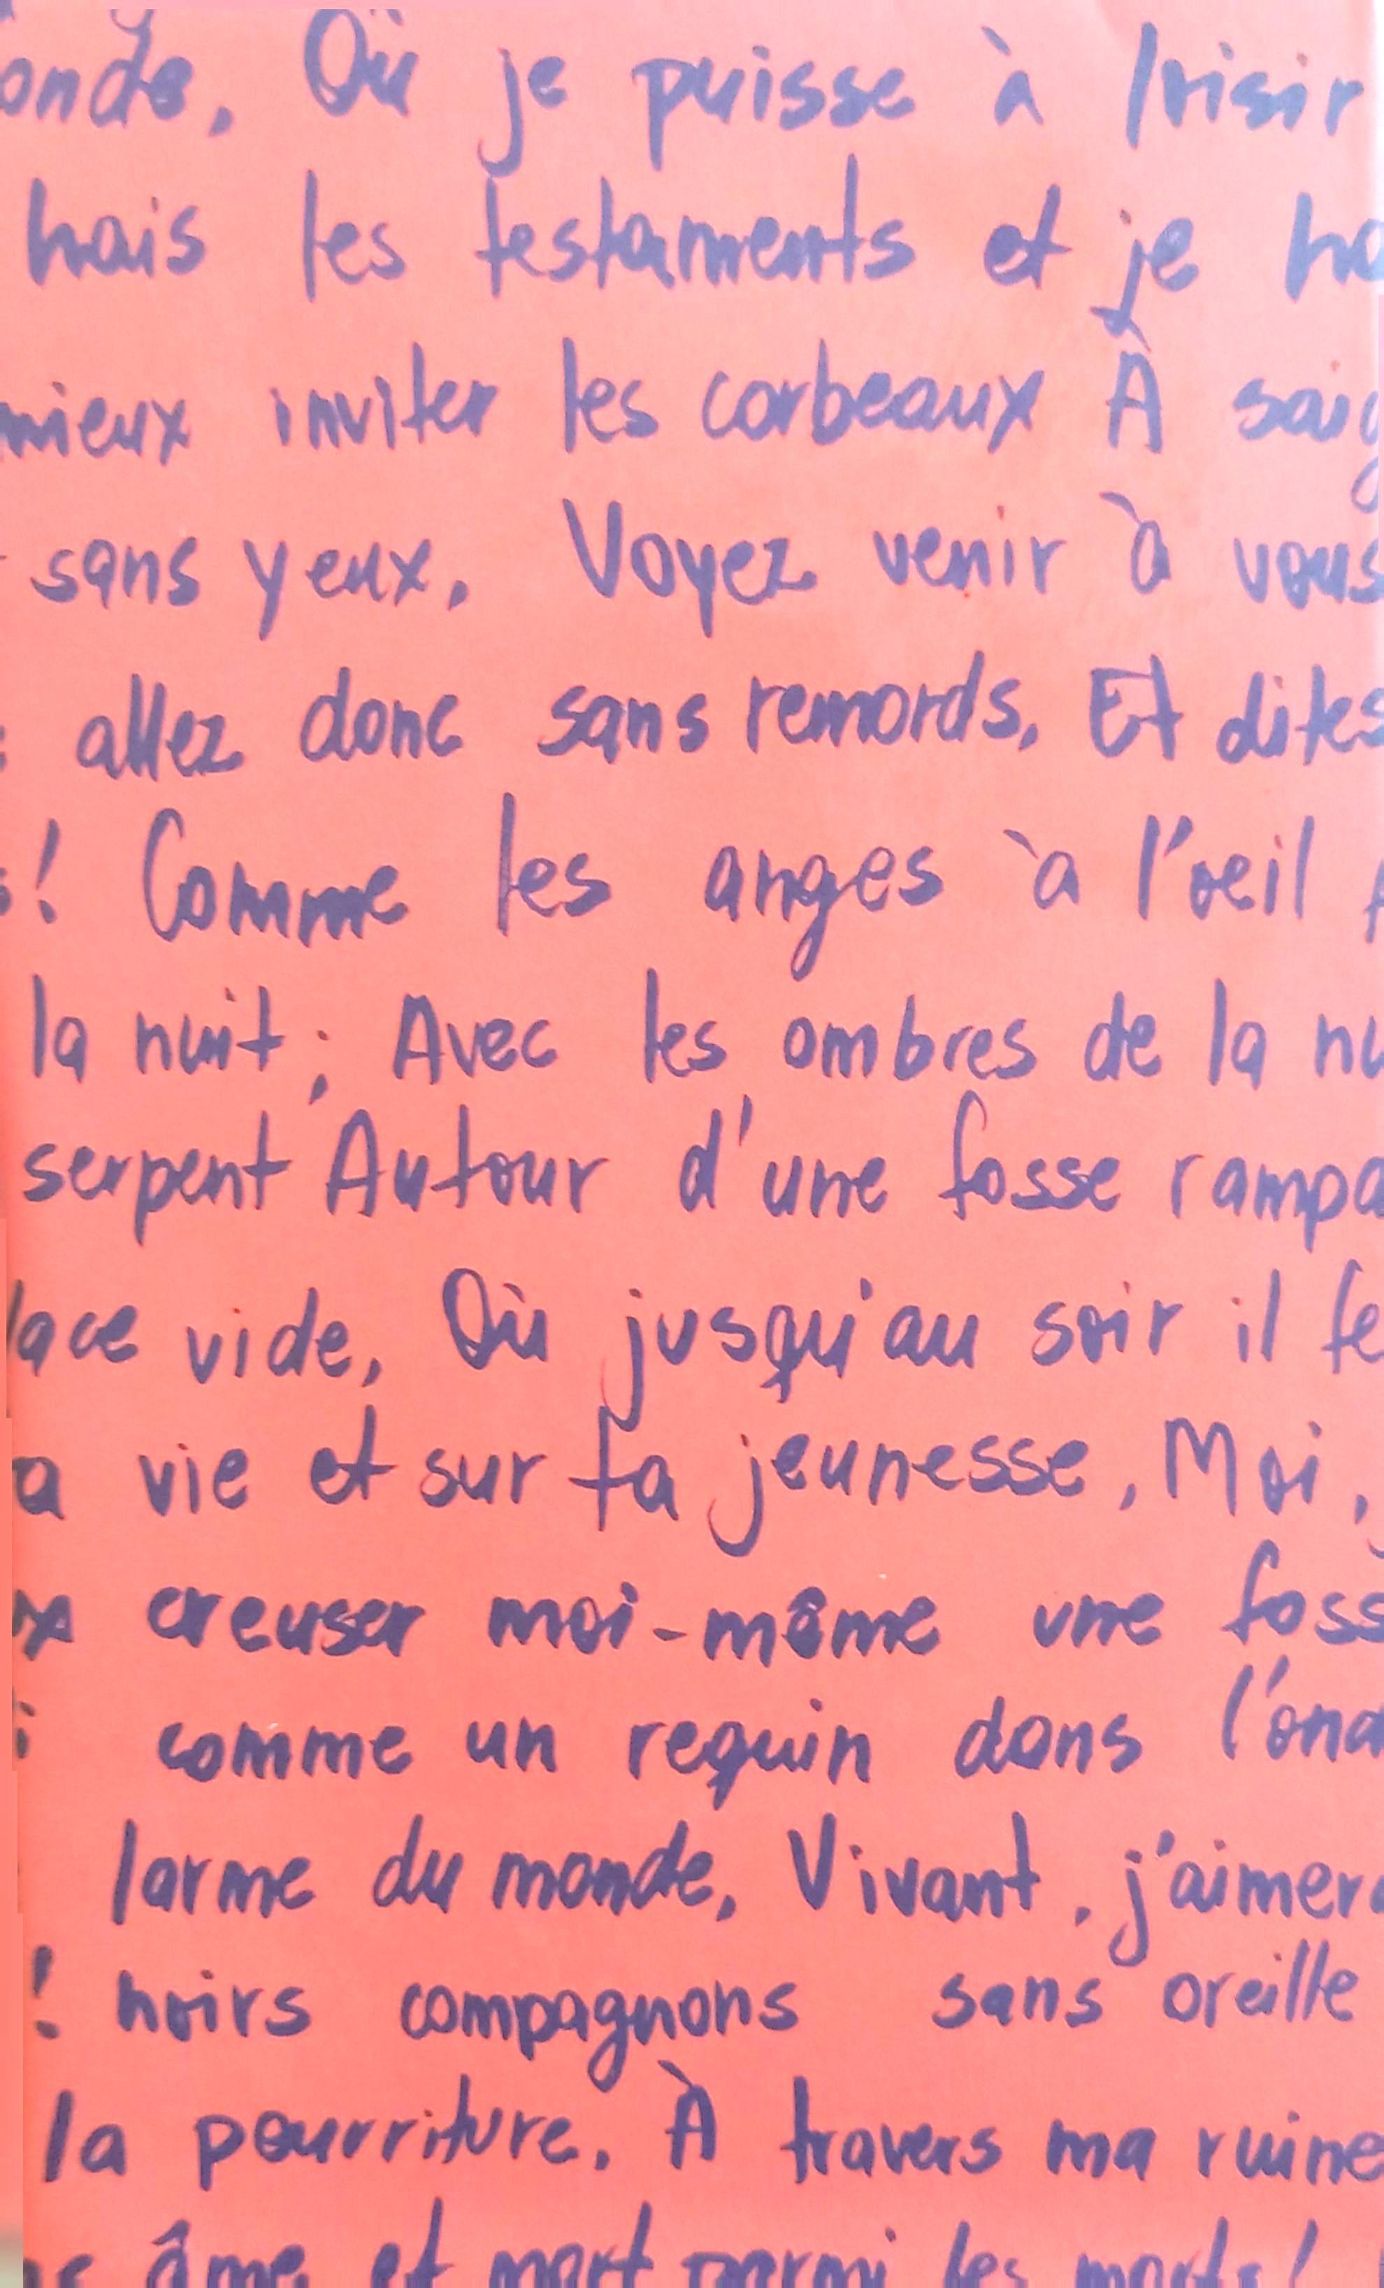 onde, Où je puisse à loisir
hais les testaments et je ha
mieux inviter les corbeaux À saig
sans yeux, Voyez venir à vous
allez donc sans remords, Et dites
! Comme les anges à l'oeil
la nuit; Avec les ombres de la nu
serpent Autour d'une fosse rampa
lace vide, Où jusqu'au soir il fe
a vie et sur ta jeunesse, Moi,
x creuser moi-même une foss
comme un requin dans l'ond
larme du monde, Vivant, j'aimera
! noirs compagnons sans oreille
la pourriture, À travers ma ruine
âme et mort parmi les morts!